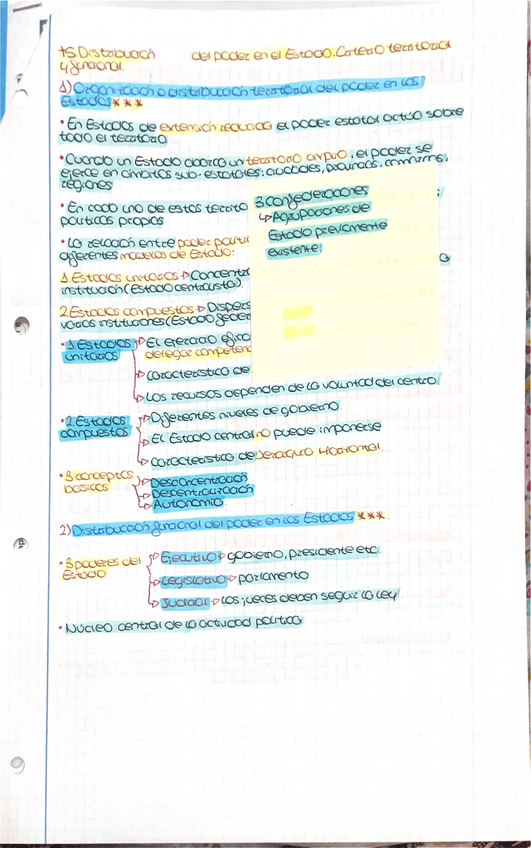 T5. Distribución del poder en el Estado. Criterio territorial
y funcional
1) Organización o distribución territorial del poder en los
Estados ***
• En Estados de extensión reducida el poder estatal actúa sobre
todo el territorio
• Cuando un Estado abarca un territorio amplio, el poder se
ejerce en ámbitos sub-estatales: ciudades, provincias,
regiones
• En cada uno de estos territo
políticas propias
• La relación entre poder políti
diferentes modelos de Estado:
1. Estados unitarios → Concentra
institución (Estado centralista)
2. Estados compuestos → Dispers
varias instituciones (Estado federa
3. Confederaciones
↳ Agrupaciones de
Estado previamente
existente
• 1. Estados
unitarios
→ El ejercicio efica
delegar competenc
→ Característica de
→ Los recursos dependen de la voluntad del centro
• 2. Estados
compuestos
→ Diferentes niveles de gobierno
→ El Estado central no puede imponerse
→ Característica de Jerarquía Horizontal.
• 3 conceptos
básicos
→ Desconcentración
→ Descentralización
→ Autonomía
2) Distribución funcional del poder en los Estados ***
• 3 poderes del
Estado
→ Ejecutivo → gobierno, presidente etc.
→ Legislativo → parlamento
→ Judicial → Los jueces deben seguir la ley
• Núcleo central de la actividad política